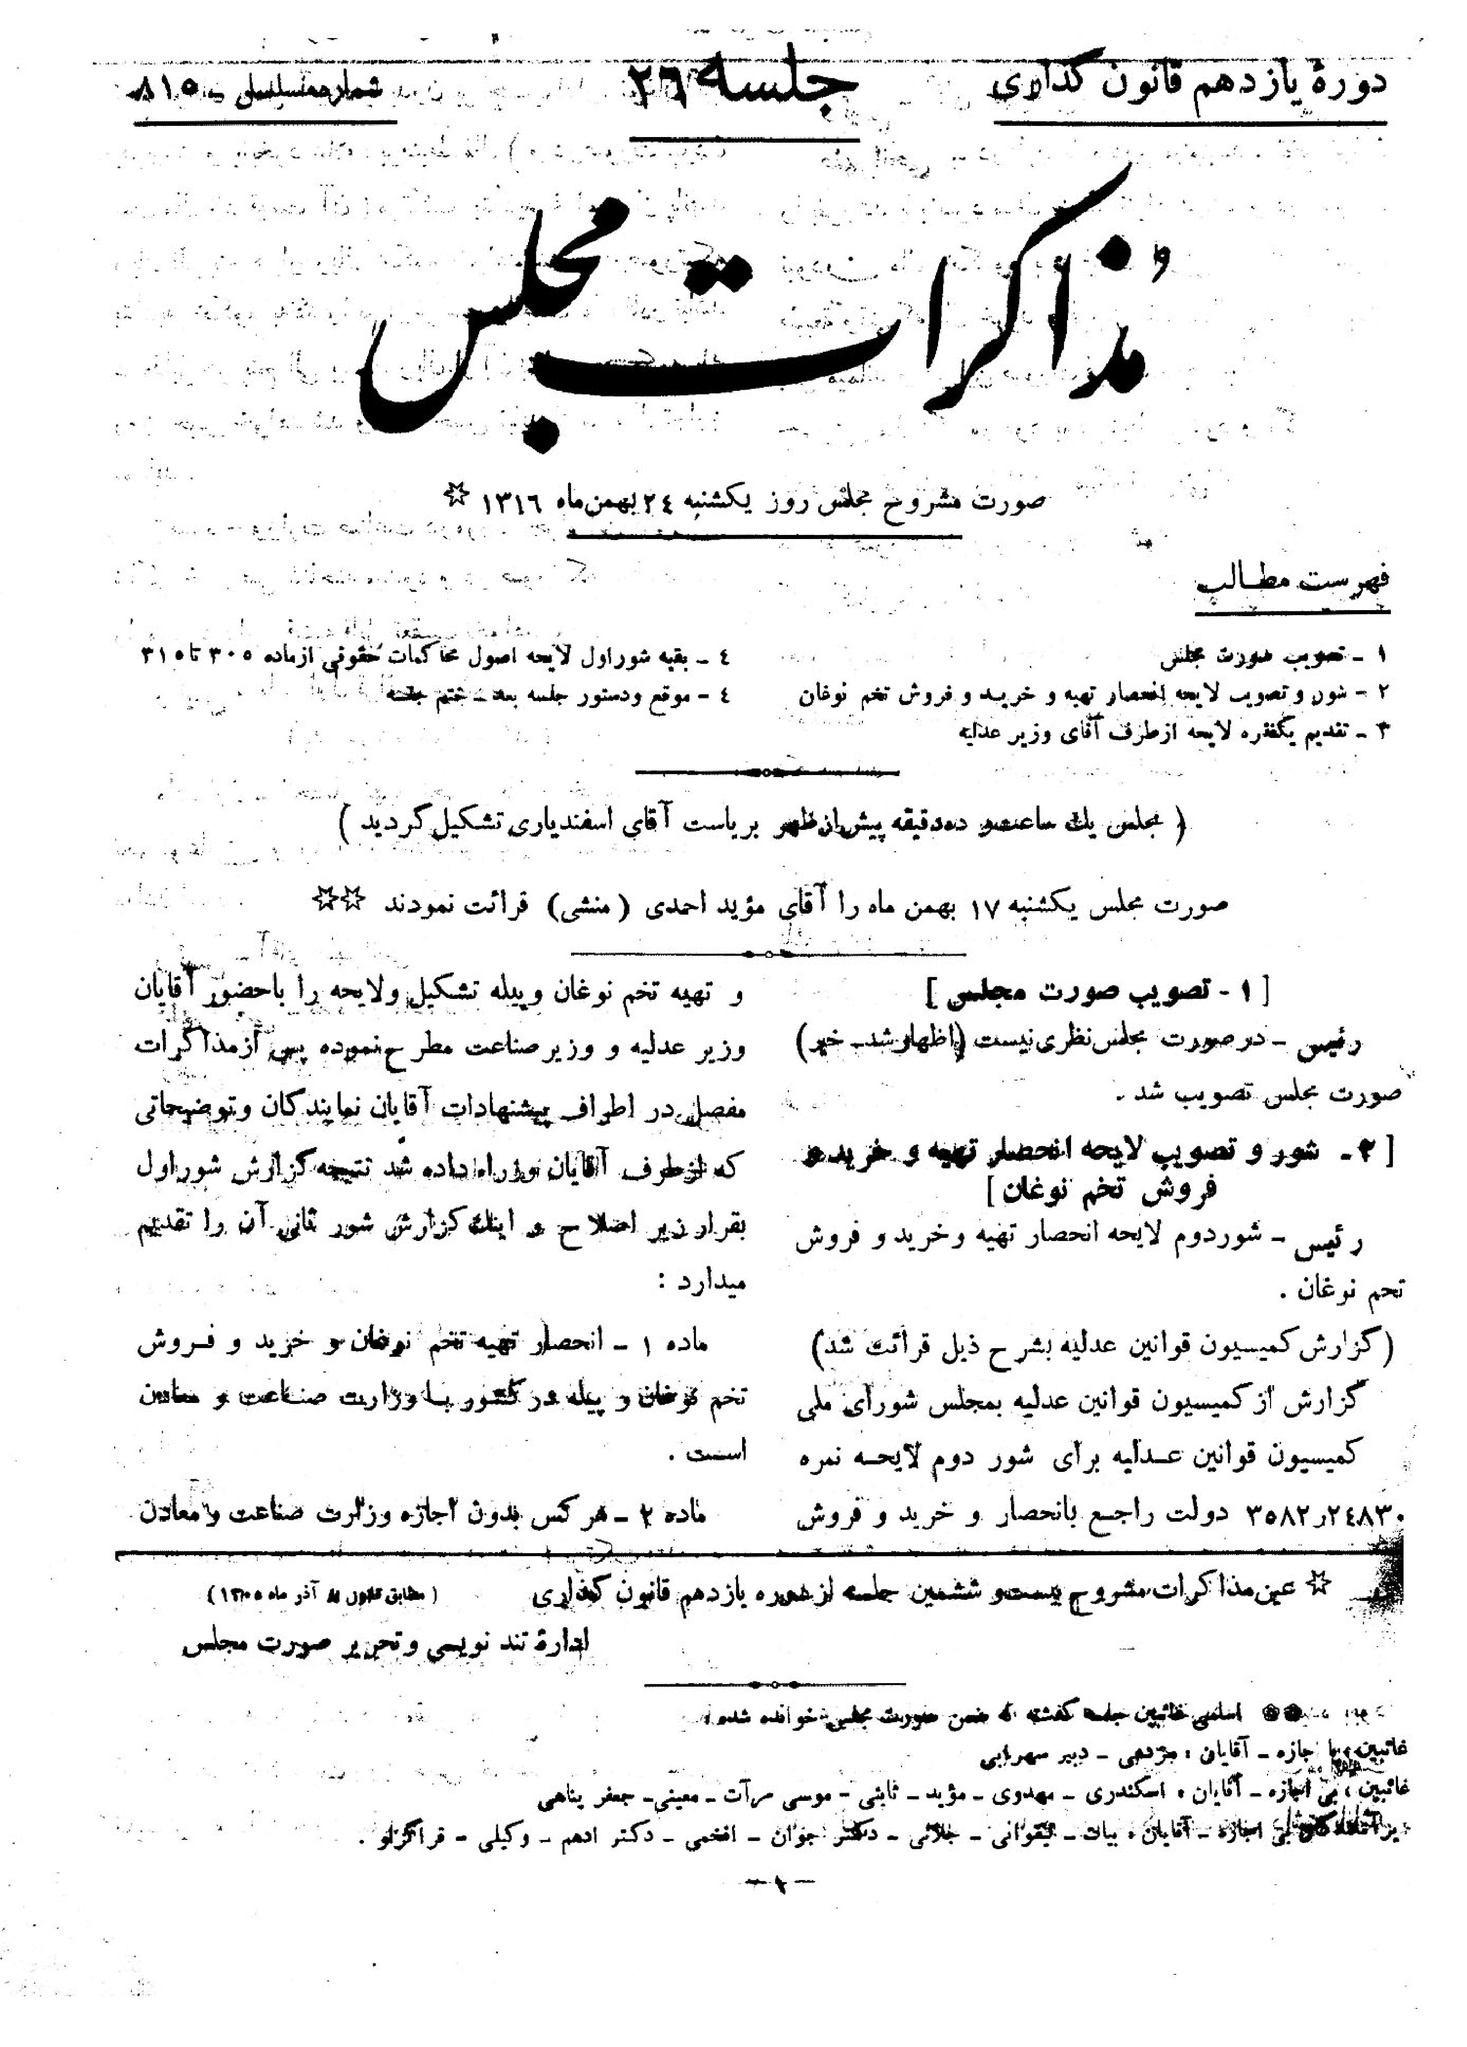 دورهٔ یازدهم قانون گذاری
جلسه ۲۶
شماره مسلسل - ۸۱۵
مذاکرات مجلس
صورت مشروح مجلس روز یکشنبه ۲۴ بهمن ماه ۱۳۱۶ ☆
فهرست مطالب
۱ - تصویب صورت مجلس
۲ - شور و تصویب لایحه انحصار تهیه و خرید و فروش تخم نوغان
۳ - تقدیم یکفقره لایحه ازطرف آقای وزیر عدلیه
۴ - بقیه شوراول لایحه اصول محاکمات حقوقی ازماده ۳۰۵ تا ۳۱۵
۴ - موقع ودستور جلسه بعد - ختم جلسه
( مجلس یك ساعت و ده دقیقه پیش از ظهر بریاست آقای اسفندیاری تشکیل گردید )
صورت مجلس یکشنبه ۱۷ بهمن ماه را آقای مؤید احمدی (منشی) قرائت نمودند ☆☆
[ ۱ - تصویب صورت مجلس ]
رئیس - درصورت مجلس نظری نیست (اظهار شد - خیر)
صورت مجلس تصویب شد .
[ ۲ - شور و تصویب لایحه انحصار تهیه و خرید و
فروش تخم نوغان ]
رئیس - شوردوم لایحه انحصار تهیه وخرید و فروش
تخم نوغان .
(گزارش کمیسیون قوانین عدلیه بشرح ذیل قرائت شد)
گزارش از کمیسیون قوانین عدلیه بمجلس شورای ملی
کمیسیون قوانین عدلیه برای شور دوم لایحه نمره
۲۴۸۳۰ر۳۵۸۲ دولت راجع بانحصار و خرید و فروش
و تهیه تخم نوغان و پیله تشکیل ولایحه را باحضور آقایان
وزیر عدلیه و وزیر صناعت مطرح نموده پس از مذاکرات
مفصل در اطراف پیشنهادات آقایان نمایندگان وتوضیحاتی
که ازطرف آقایان وزراء داده شد نتیجه گزارش شوراول
بقرار زیر اصلاح و اینك گزارش شور ثانی آن را تقدیم
میدارد :
ماده ۱ - انحصار تهیه تخم نوغان و خرید و فروش
تخم نوغان و پیله در کشور با وزارت صناعت و معادن
است .
ماده ۲ - هرکس بدون اجازه وزارت صناعت و معادن
☆ عین مذاکرات مشروح بیست و ششمین جلسه از دوره یازدهم قانون گذاری
(مطابق قانون ۸ آذر ماه ۱۳۰۵)
ادارهٔ تند نویسی وتحریر صورت مجلس
اسامی غائبین جلسه گذشته که ضمن صورت مجلس خوانده شده :
غائبین با اجازه - آقایان : مژدهی - دبیر سهرابی
غائبین بی اجازه - آقایان : اسکندری - مهدوی - مؤید - ثابتی - موسی مرآت - معینی - جعفر پناهی
بی اجازه - آقایان : بیات - نیقوانی - جلائی - دکتر جوان - افخمی - دکتر ادهم - وکیلی - قراگزلو .
- ۱ -